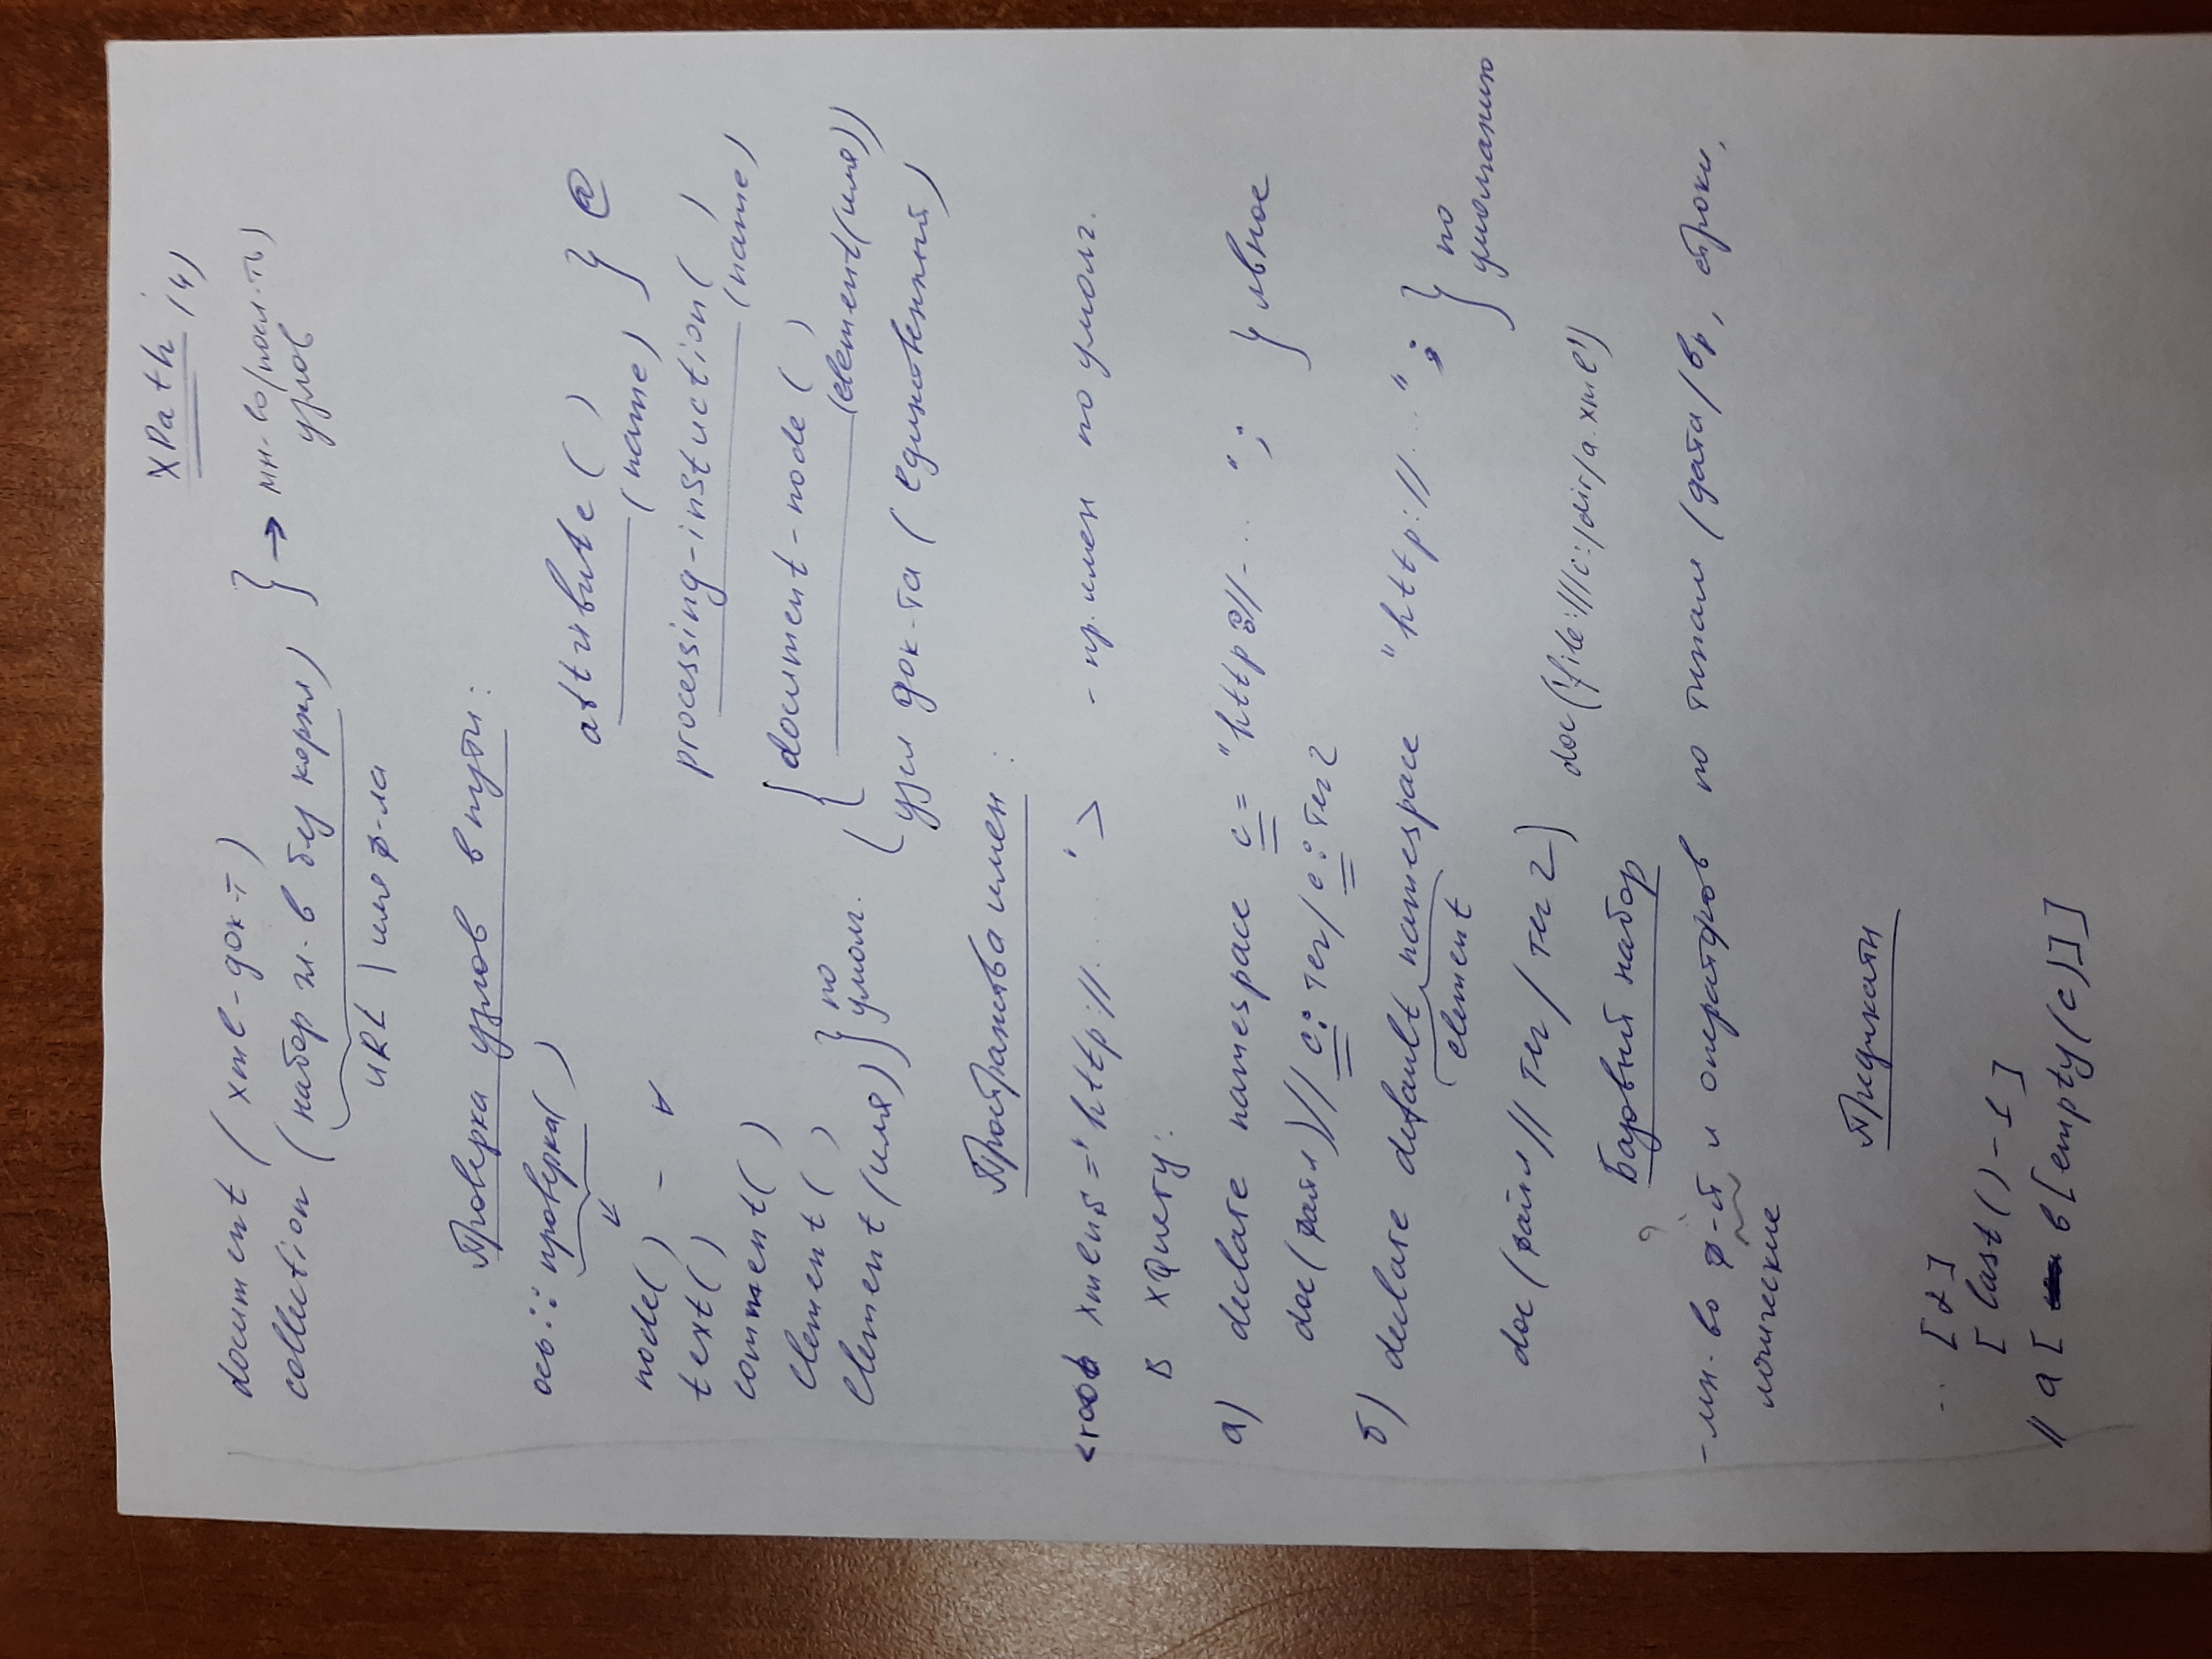 XPath (4)
document ( xml-док-т )
collection ( набор эл-в без корня ) } → мн-во/посл-ть)
узлов
URL | имя ф-ла
Проверка узлов в пути:
ось :: проверка( )
node( ) - ∀
text( )
comment( )
element( )
element (имя) } по умолч.
attribute ( )
(name) } @
processing-instuction ( )
(name)
document-node ( )
(element(имя))
узел док-та ( единственный )
Пространства имен :
<root xmlns="http://...... "> - пр. имен по умолч.
в XQuery:
а) declare namespace c = "http://.... " ; } явное
doc(файл)// c: тег / c: тег2
б) declare default namespace "http://...." ; } по умолчанию
element
doc (файл // тег / тег2)
doc('file:///c:/dir/a.xml')
Базовый набор
?
- мн-во ф-й и операторов по типам (дата/вр, строки,
логические
Предикаты
.. [2]
[ last() - 1 ]
// a [ в [empty(c)]]